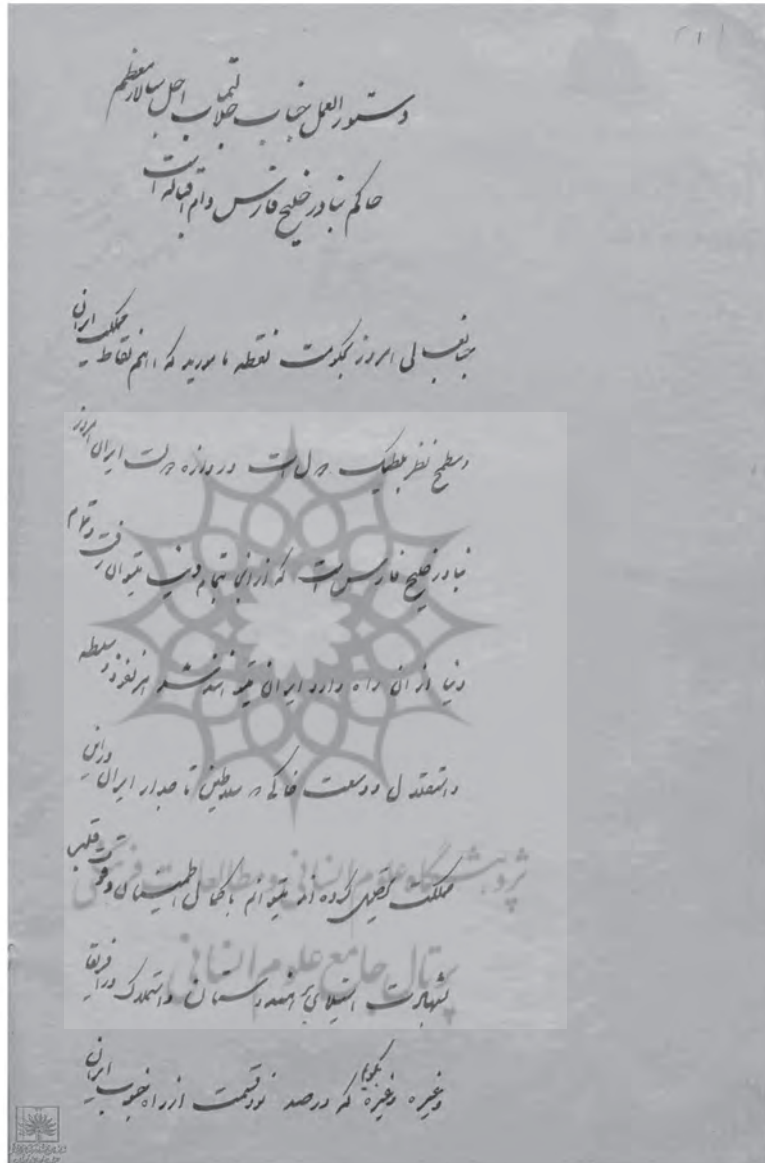 دستورالعمل جناب جلالتمآب اجل سالار معظم
حاکم بنادر خلیج فارس دام اقباله است
جنابعالی امروز بحکومت نقطه مامورید که اهم نقاط مملکت ایران
و مطمح نظر پلتیک دول است دروازه دولت ایران امروز
بنادر خلیج فارس است که از آنجا بتمام دنیا میتوان رفت و تمام
دنیا از آن راه دارد ایران هر نفوذ و سلطه
و استقلال و وسعت خاکی که سلاطین تاجدار ایران در این
مملکت تحصیل کرده‌اند میتوانم با کمال اطمینان و قوت قلب
بشهادت استیلای بر هندوستان و استملاک در افریقا
و غیره و غیره بگویم که درصد نود قسمت از راه جنوب ایران
پژوهشگاه علوم انسانی و مطالعات فرهنگی
پرتال جامع علوم انسانی